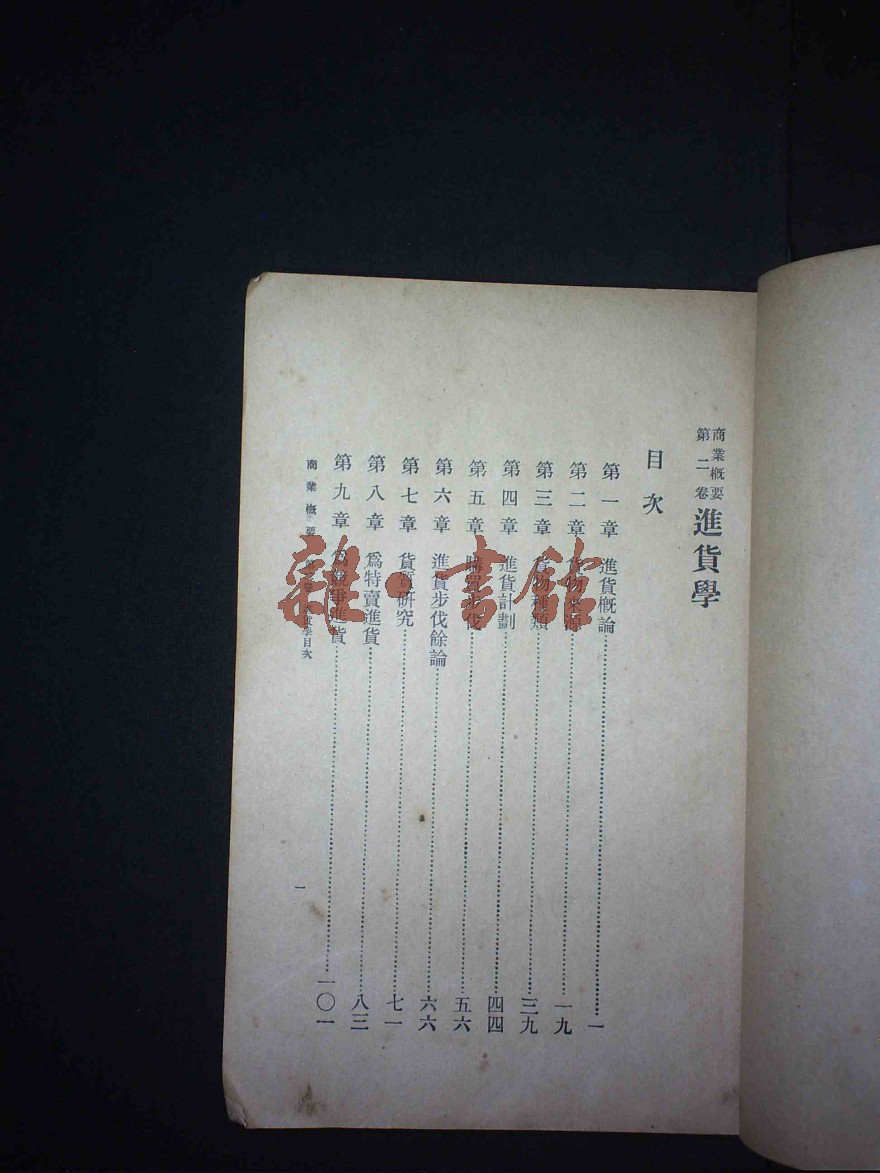 商業概要
第二卷
進貨學
目次
第一章 進貨概論 一
第二章 貨物來源 一九
第三章 貨物種類 三九
第四章 進貨計劃 四四
第五章 購買步伐 五六
第六章 進貨步伐餘論 六六
第七章 貨質研究 七一
第八章 爲特賣進貨 八三
第九章 爲競爭進貨 一〇一
商業概要 貨學目次
一
雜·書館